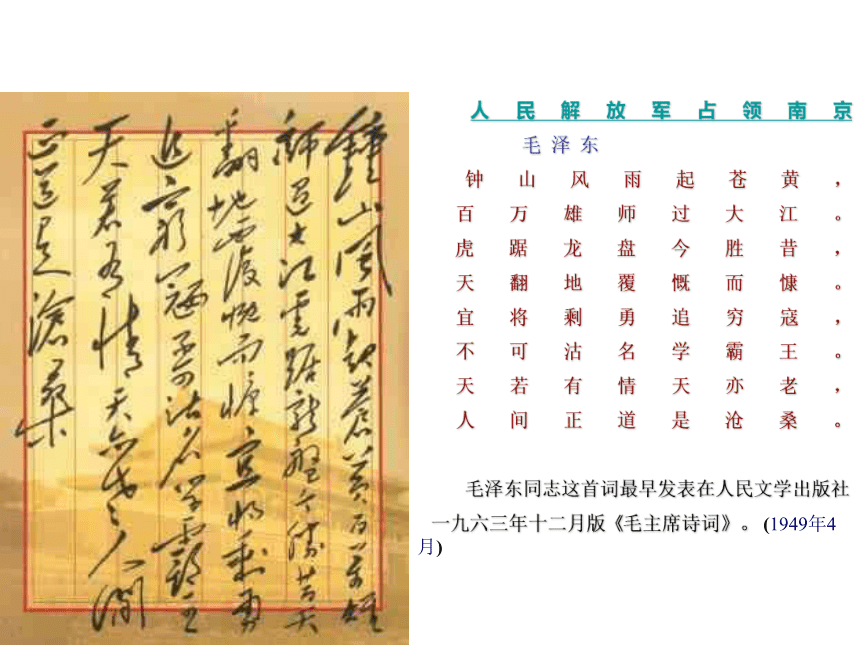 鐘山風雨起蒼黃百萬雄
師過大江虎踞龍盤今勝昔天
翻地覆慨而慷宜將剩勇
追窮寇不可沽名學霸王
天若有情天亦老人間
正道是滄桑
人民解放军占领南京
毛泽东
钟山风雨起苍黄，
百万雄师过大江。
虎踞龙盘今胜昔，
天翻地覆慨而慷。
宜将剩勇追穷寇，
不可沽名学霸王。
天若有情天亦老，
人间正道是沧桑。
毛泽东同志这首词最早发表在人民文学出版社
一九六三年十二月版《毛主席诗词》。(1949年4
月)